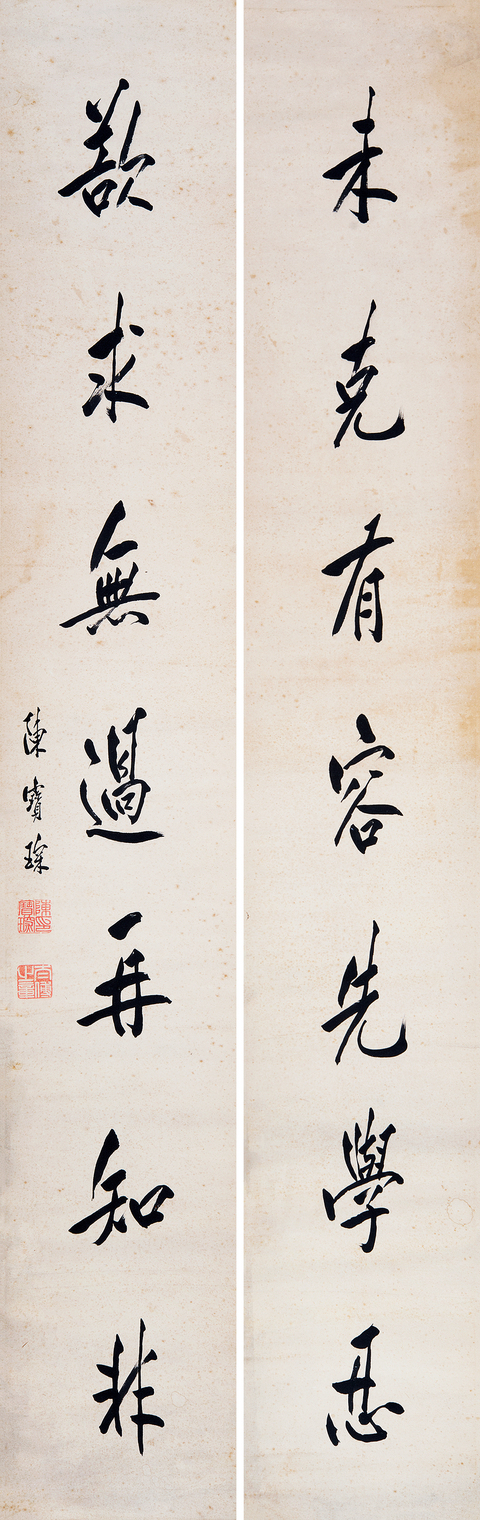 未克有容先學忍
欲求無過再知非
陳寶琛
陳印寶琛